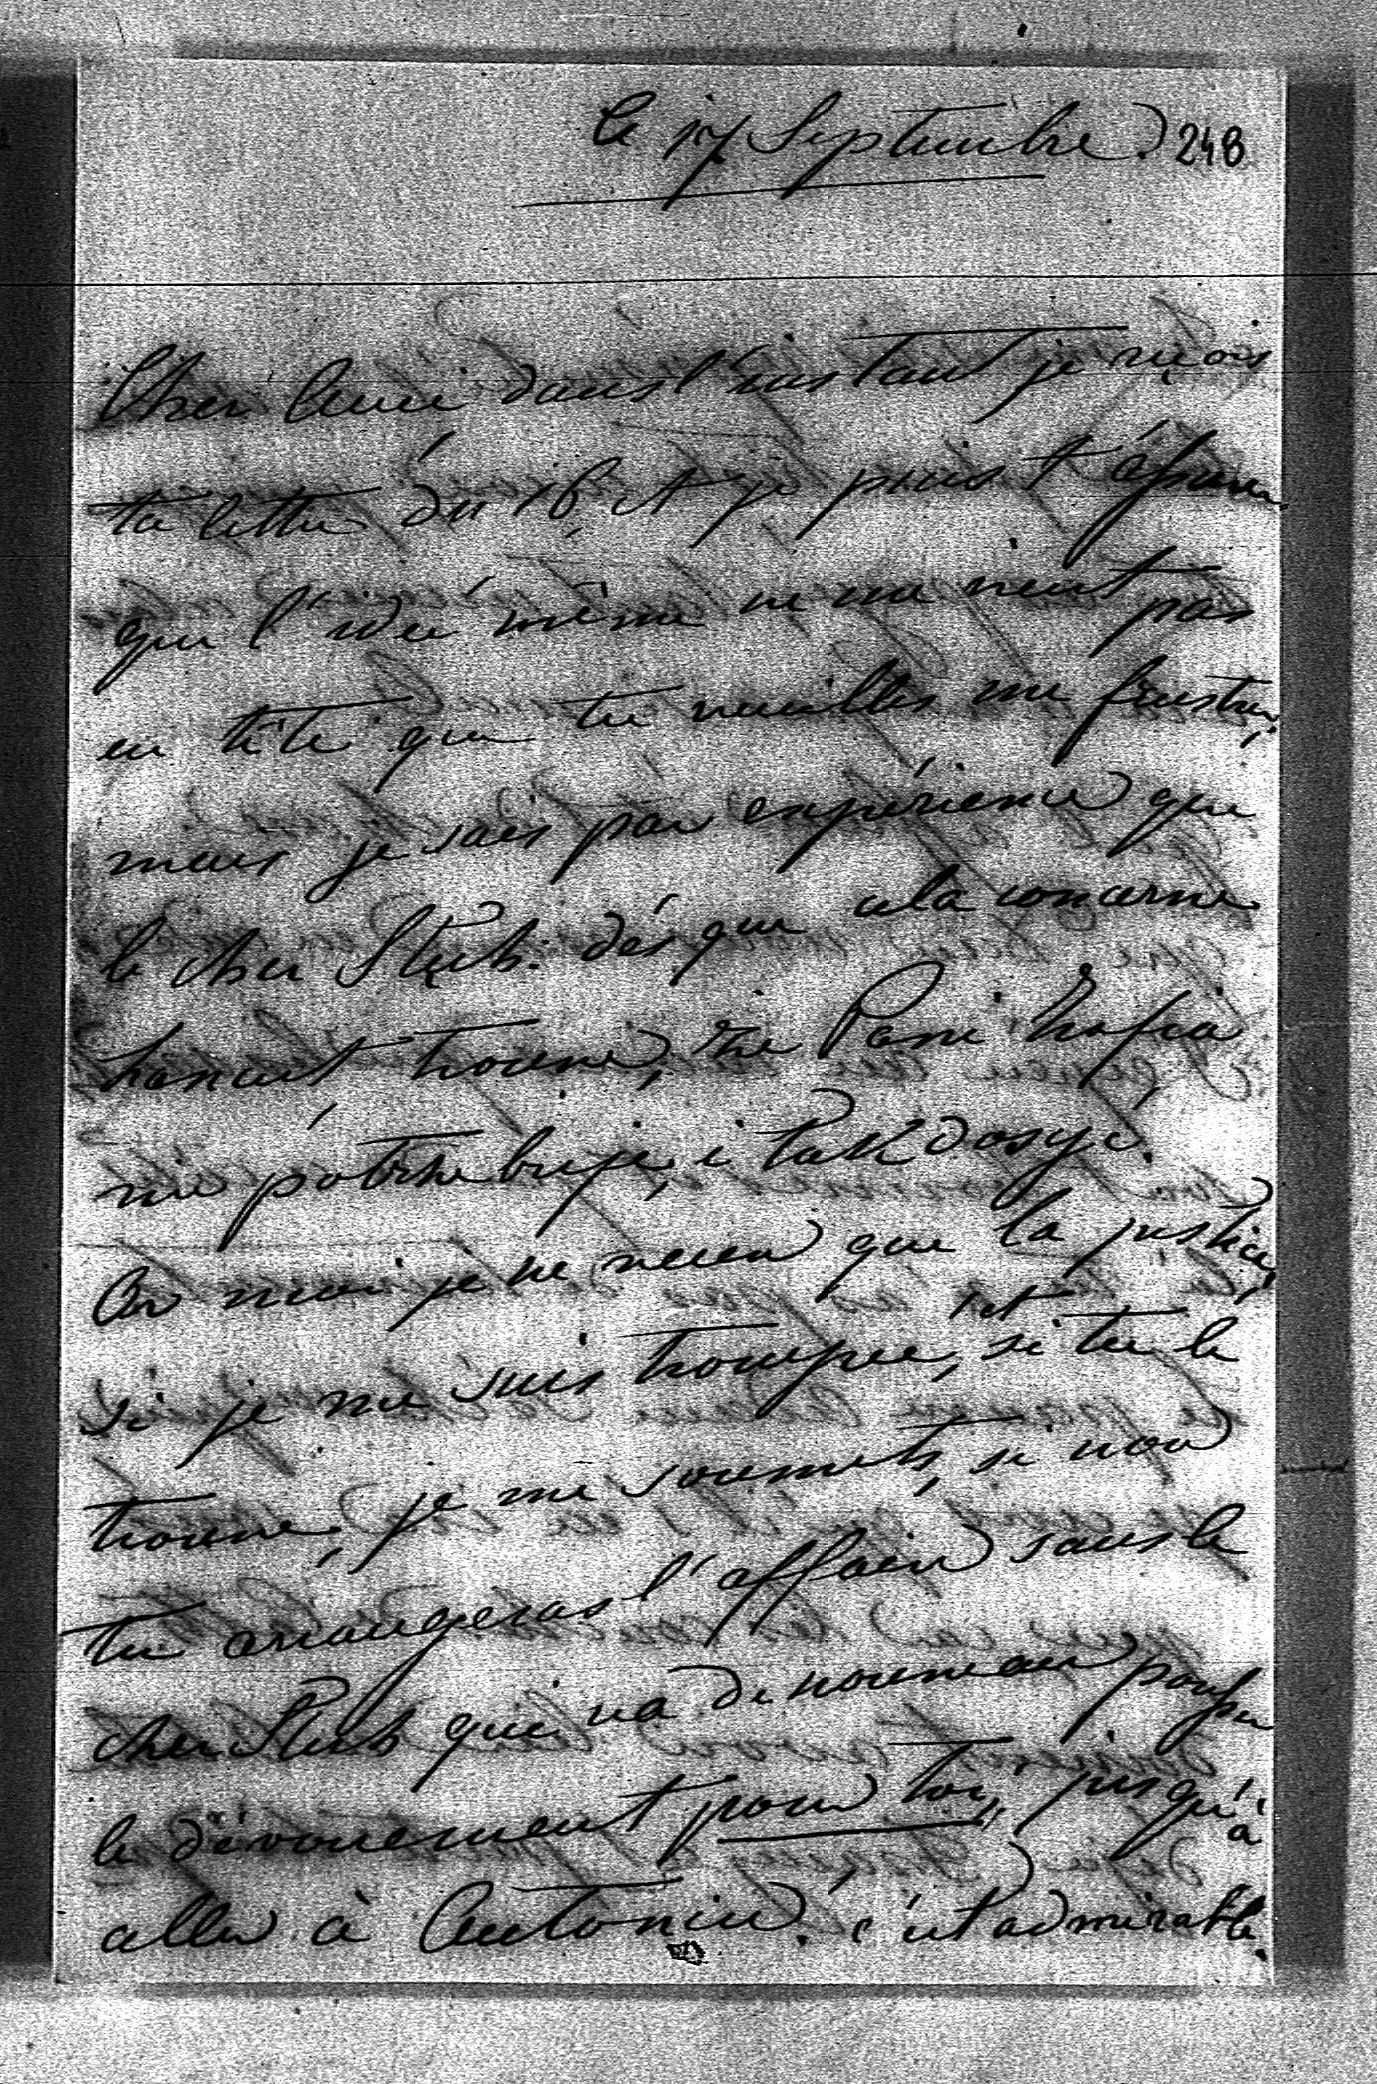 le 17 Septembre. 248
Cher Ami dans l'instant je reçois
ta lettre du 16, et je puis t'assurer
que l'idée même ne me vient pas
en tête que tu veuilles me frustrer,
mais je sais par expérience que
le cher Stub. dès que cela concerne
trouve, że Pani Zofia
nie potrzebuje, i tak dosyć.
Or moi je ne veux que la justice,
si je me suis trompée, et si tu le
trouve, je me soumets, si non
tu arrangeras l'affaire sans le
cher Stub qui va de nouveau pousser
le dévouement pour toi, jusqu'à
aller à Antonin. c'est admirable.